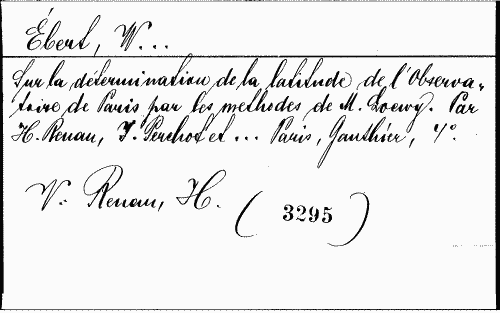 Ébert, W...
Sur la détermination de la latitude de l'Observa-
toire de Paris par les méthodes de M. Loewy. Par
H. Renan, J. Perchot et ... Paris, Gauthier, 4º.
V. Renan, H.
(3295)